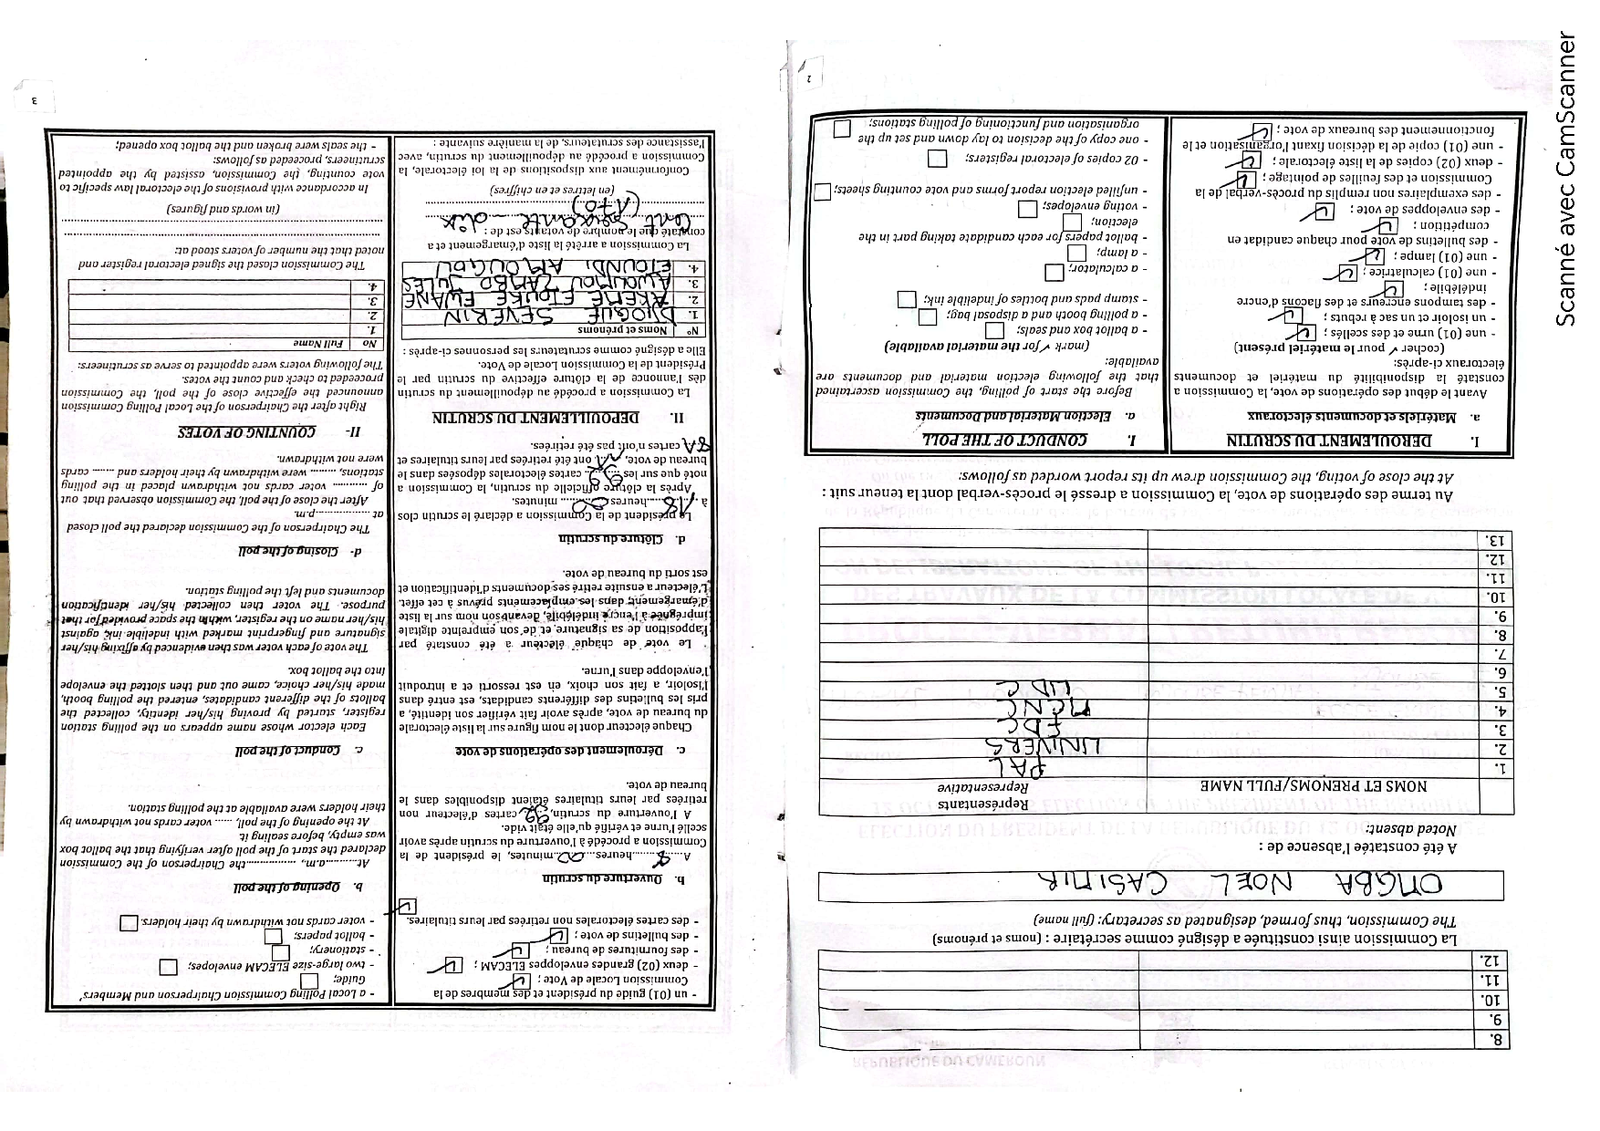 8.
9.
10.
11.
12.
La Commission ainsi constituée a désigné comme secrétaire : (noms et prénoms)
The Commission, thus formed, designated as secretary: (full name)
OMGBA NOEL CASIMIR
A été constatée l'absence de :
Noted absent:
NOMS ET PRENOMS/FULL NAME Représentants
Representative
1. PAL
2. UNIVERS
3. FDC
4. MCNC
5. UDC
6.
7.
8.
9.
10.
11.
12.
13.
Au terme des opérations de vote, la Commission a dressé le procès-verbal dont la teneur suit :
At the close of voting, the Commission drew up its report worded as follows:
I. DEROULEMENT DU SCRUTIN
a. Matériels et documents électoraux
Avant le début des opérations de vote, la Commission a
constaté la disponibilité du matériel et documents
électoraux ci-après:
(cocher ✓ pour le matériel présent)
- une (01) urne et des scellés ;
- un isoloir et un sac à rebuts ;
- des tampons encreurs et des flacons d'encre
indélébile;
- une (01) calculatrice ;
- une (01) lampe ;
- des bulletins de vote pour chaque candidat en
compétition ;
- des enveloppes de vote ;
- des exemplaires non remplis du procès-verbal de la
Commission et des feuilles de pointage ;
- deux (02) copies de la liste électorale ;
- une (01) copie de la décision fixant l'organisation et le
fonctionnement des bureaux de vote ;
I. CONDUCT OF THE POLL
a. Election Material and Documents
Before the start of polling, the Commission ascertained
that the following election material and documents are
available:
(mark ✓ for the material available)
- a ballot box and seals;
- a polling booth and a disposal bag;
- stamp pads and bottles of indelible ink;
- a calculator;
- a lamp;
- ballot papers for each candidate taking part in the
election;
- voting envelopes;
- unfilled election report forms and vote counting sheets;
- 02 copies of electoral registers;
- one copy of the decision to lay down and set up the
organisation and functioning of polling stations;
2
- un (01) guide du président et des membres de la
Commission Locale de Vote ;
- deux (02) grandes enveloppes ELECAM ;
- des fournitures de bureau ;
- des bulletins de vote ;
- des cartes électorales non retirées par leurs titulaires.
b. Ouverture du scrutin
A 8 heures 00 minutes, le président de la
Commission a procédé à l'ouverture du scrutin après avoir
scellé l'urne et vérifié qu'elle était vide.
A l'ouverture du scrutin, 99 cartes d'électeur non
retirées par leurs titulaires étaient disponibles dans le
bureau de vote.
c. Déroulement des opérations de vote
Chaque électeur dont le nom figure sur la liste électorale
du bureau de vote, après avoir fait vérifier son identité, a
pris les bulletins des différents candidats, est entré dans
l'isoloir, a fait son choix, en est ressorti et a introduit
l'enveloppe dans l'urne.
Le vote de chaque électeur a été constaté par
l'apposition de sa signature et de son empreinte digitale
imprégnée à l'encre indélébile, devant son nom sur la liste
d'émargement dans les emplacements prévus à cet effet.
L'électeur a ensuite retiré ses documents d'identification et
est sorti du bureau de vote.
d. Clôture du scrutin
Le président de la Commission a déclaré le scrutin clos
à 18 heures 00 minutes.
Après la clôture officielle du scrutin, la Commission a
noté que sur les 99 cartes électorales déposées dans le
bureau de vote, ont été retirées par leurs titulaires et
cartes n'ont pas été retirées.
II. DEPOUILLEMENT DU SCRUTIN
La Commission a procédé au dépouillement du scrutin
dès l'annonce de la clôture effective du scrutin par le
Président de la Commission Locale de Vote.
Elle a désigné comme scrutateurs les personnes ci-après :
N° Noms et prénoms
1. DJIOGUE SEVERIN
2. AKEME ETOUKE EWANE
3. AWOUMOU ZAMBO JULES
4. ETOUNDI AMOUGOU
La Commission a arrêté la liste d'émargement et a
constaté que le nombre de votants est de :
Cent Soixante-dix
(170)
(en lettres et en chiffres)
Conformément aux dispositions de la loi électorale, la
Commission a procédé au dépouillement du scrutin, avec
l'assistance des scrutateurs, de la manière suivante :
- a Local Polling Commission Chairperson and Members'
Guide;
- two large-size ELECAM envelopes;
- stationery;
- ballot papers;
- voter cards not withdrawn by their holders.
b. Opening of the poll
At..........a.m., ..............the Chairperson of the Commission
declared the start of the poll after verifying that the ballot box
was empty, before sealing it.
At the opening of the poll, ...... voter cards not withdrawn by
their holders were available at the polling station.
c. Conduct of the poll
Each elector whose name appears on the polling station
register, started by proving his/her identity, collected the
ballots of the different candidates, entered the polling booth,
made his/her choice, came out and then slotted the envelope
into the ballot box.
The vote of each voter was then evidenced by affixing his/her
signature and fingerprint marked with indelible ink against
his/her name on the register, within the space provided for that
purpose. The voter then collected his/her identification
documents and left the polling station.
d- Closing of the poll
The Chairperson of the Commission declared the poll closed
at ..................p.m.
After the close of the poll, the Commission observed that out
of .......... voter cards not withdrawn placed in the polling
stations, ........ were withdrawn by their holders and ...... cards
were not withdrawn.
II- COUNTING OF VOTES
Right after the Chairperson of the Local Polling Commission
announced the effective close of the poll, the Commission
proceeded to check and count the votes.
The following voters were appointed to serve as scrutineers:
No Full Name
1.
2.
3.
4.
The Commission closed the signed electoral register and
noted that the number of voters stood at:
(in words and figures)
In accordance with provisions of the electoral law specific to
vote counting, the Commission, assisted by the appointed
scrutineers, proceeded as follows:
- the seals were broken and the ballot box opened;
3
Scanné avec CamScanner